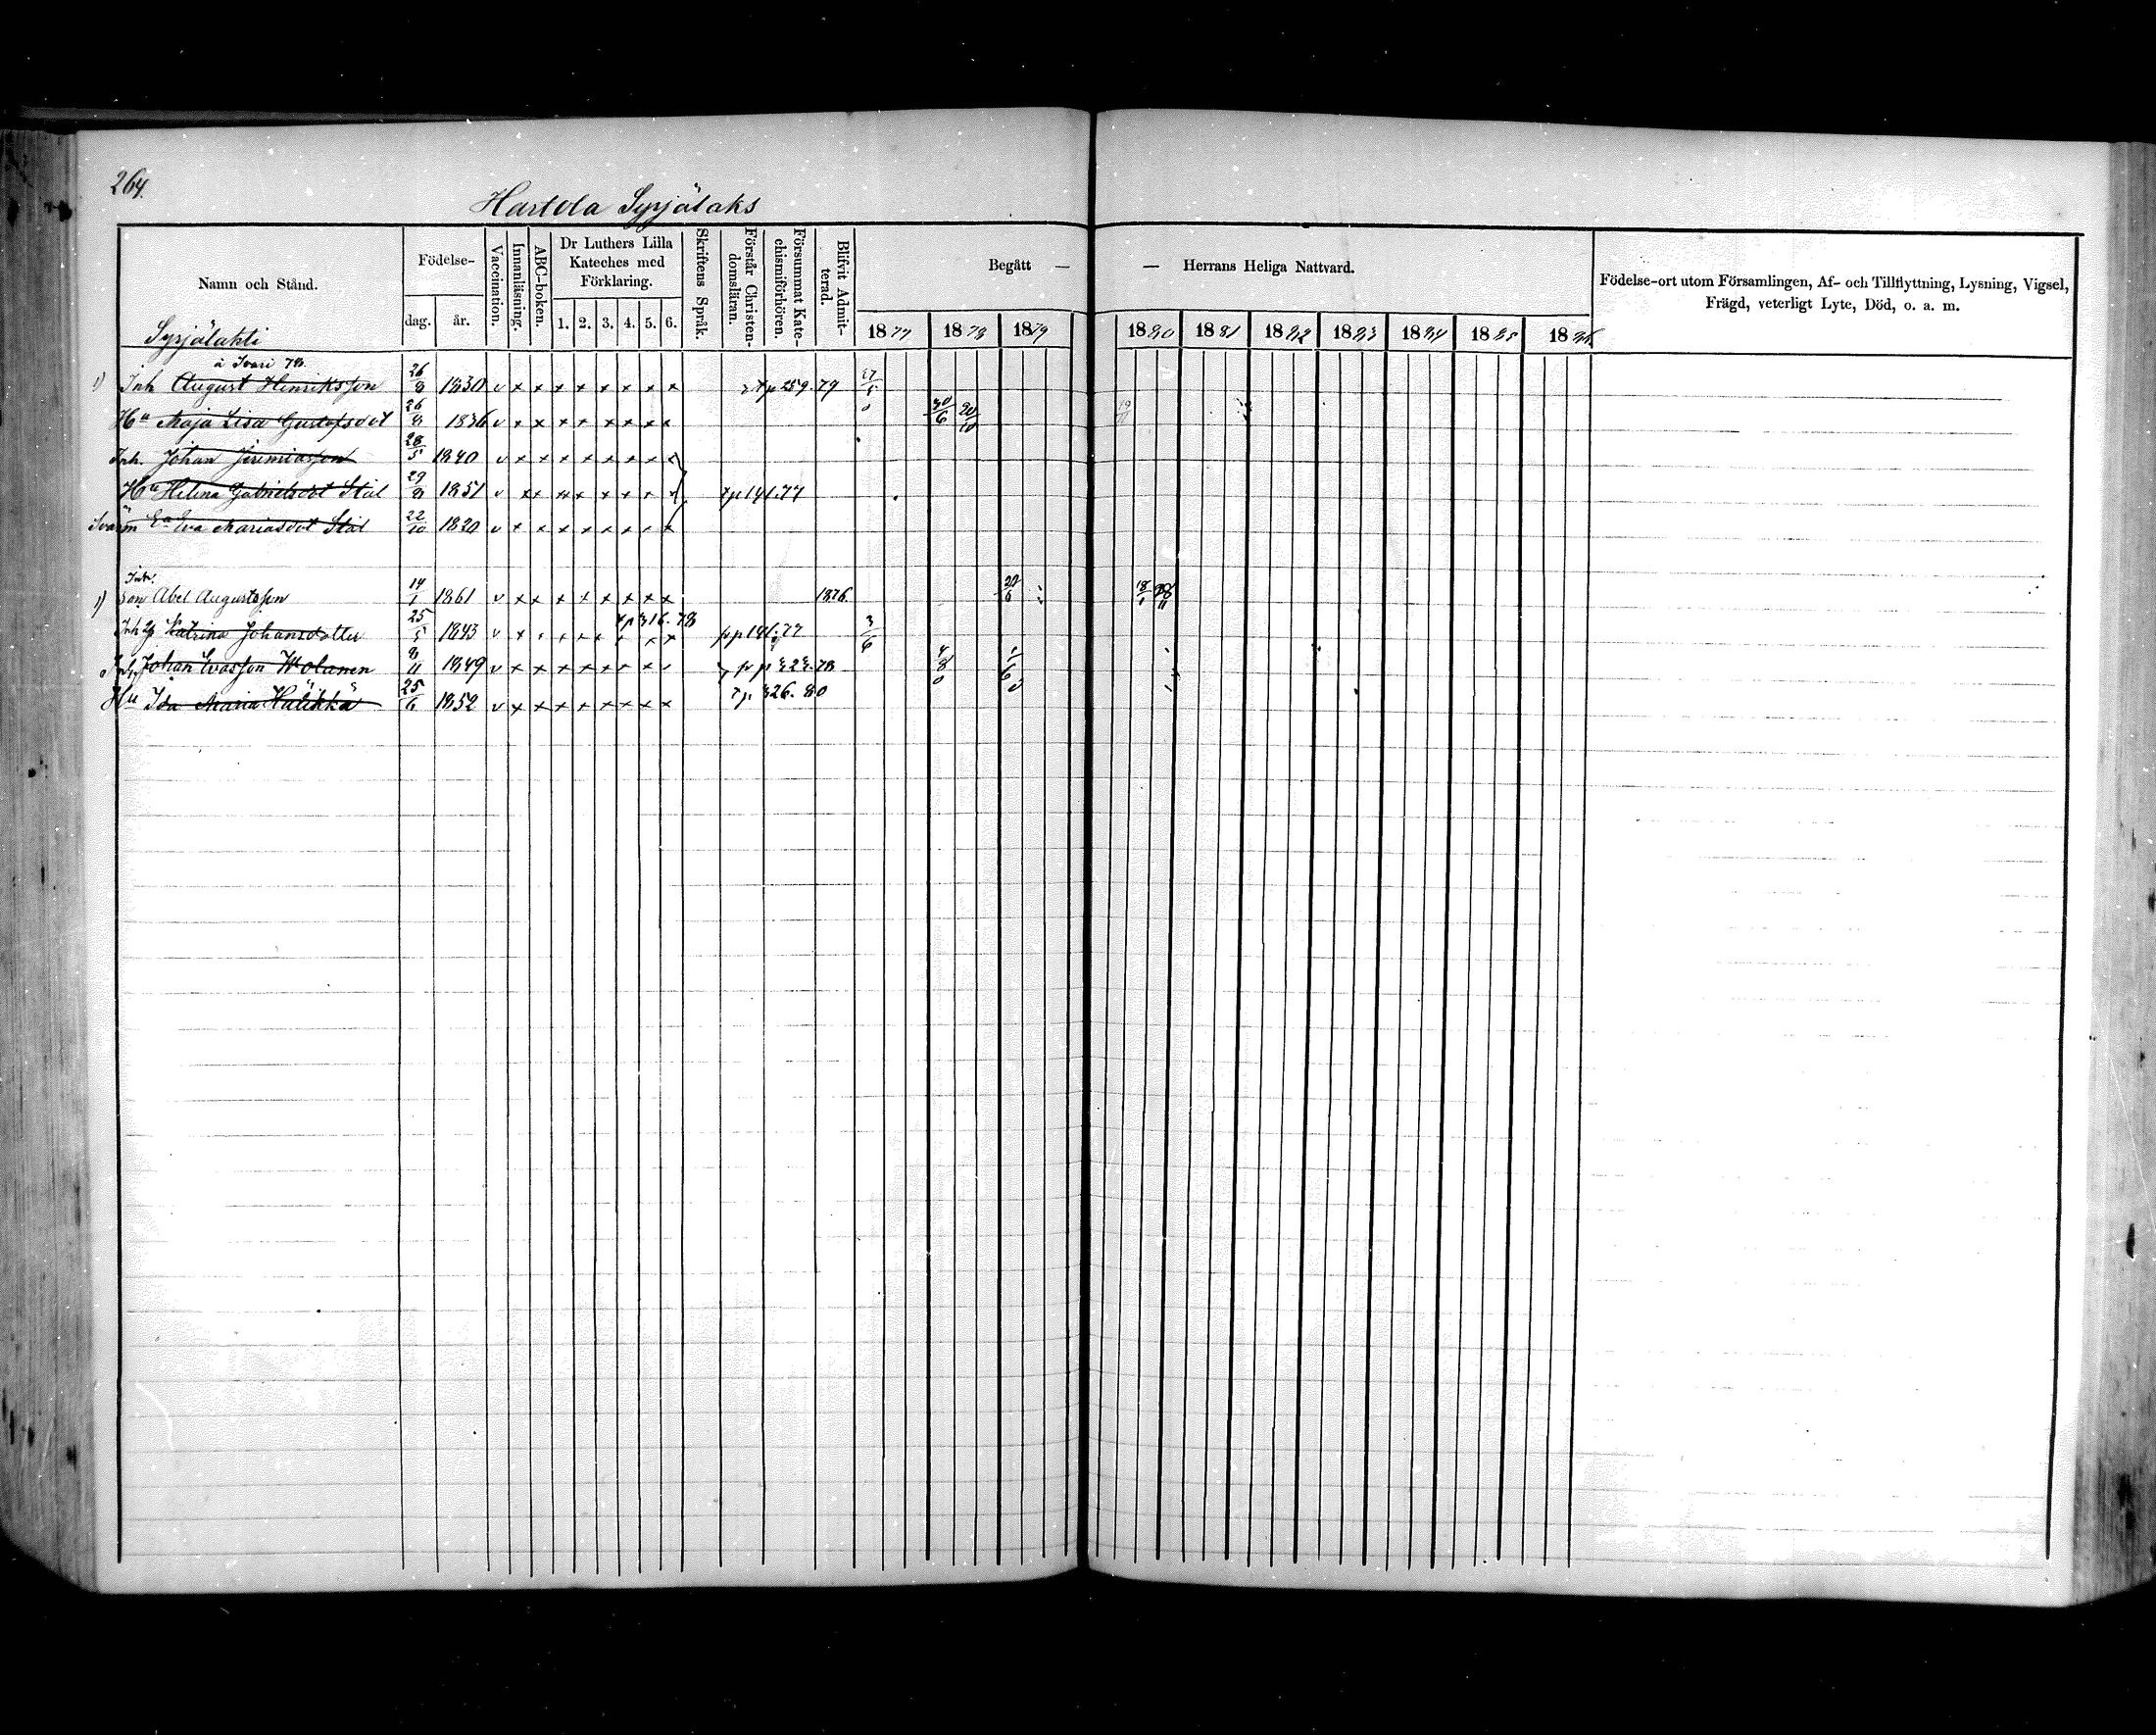 264.
Hartola Syrjälaks
Namn och Stånd.
Födelse-
dag.
år.
Vaccination.
Innanläsning.
ABC-boken.
Dr Luthers Lilla
Kateches med
Förklaring.
1. 2. 3. 4. 5. 6.
Skriftens Språk.
Förstår Christen-
domsläran.
Försummat Kate-
chismiförhören.
Blifvit Admit-
terad.
Begått — — Herrans Heliga Nattvard.
1877 1878 1879 1880 1881 1882 1883 1884 1885 1886
Födelse-ort utom Församlingen, Af- och Tillflyttning, Lysning, Vigsel,
Frägd, veterligt Lyte, Död, o. a. m.
Syrjälahti
1) Inh August Henriksson 26/8 1830 v x x x x x x x x p 259. 79 27/5
Hu Maja Lisa Gustafsdot 26/8 1836 v x x x x x x x x 30/6 20/10 19/11
Inh. Johan Jeremiasson 28/5 1840 v x x x x x x x x
Hu Helena Gabrielsdot Stål 29/8 1851 v x x x x x x x x p 141. 77
Eva Mariasdot Stål 22/10 1820 v x x x x x x x x
Inh.
1) Son Abel Augustsson 14/1 1861 v x x x x x x x x 1876 18/1
p 316. 78
Inh Katrina Johansdotter 25/5 1843 v x p 141. 77 3/6
Johan Evasson Wolanen 8/11 1849 v x x x x x x x p 323. 78 4/8 1/6
Hu Ida Maria Hälikkä 25/6 1852 v x x x x x x x x p. 326. 80